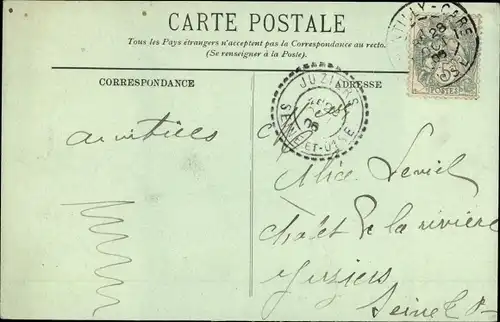 CARTE POSTALE
Tous les Pays étrangers n'acceptent pas la Correspondance au recto.
(Se renseigner à la Poste).
CORRESPONDANCE
ADRESSE
JUZIERS
SEINE-ET-OISE
GARE
POSTES
Alice
Chalet de la rivière
Juziers
Seine &